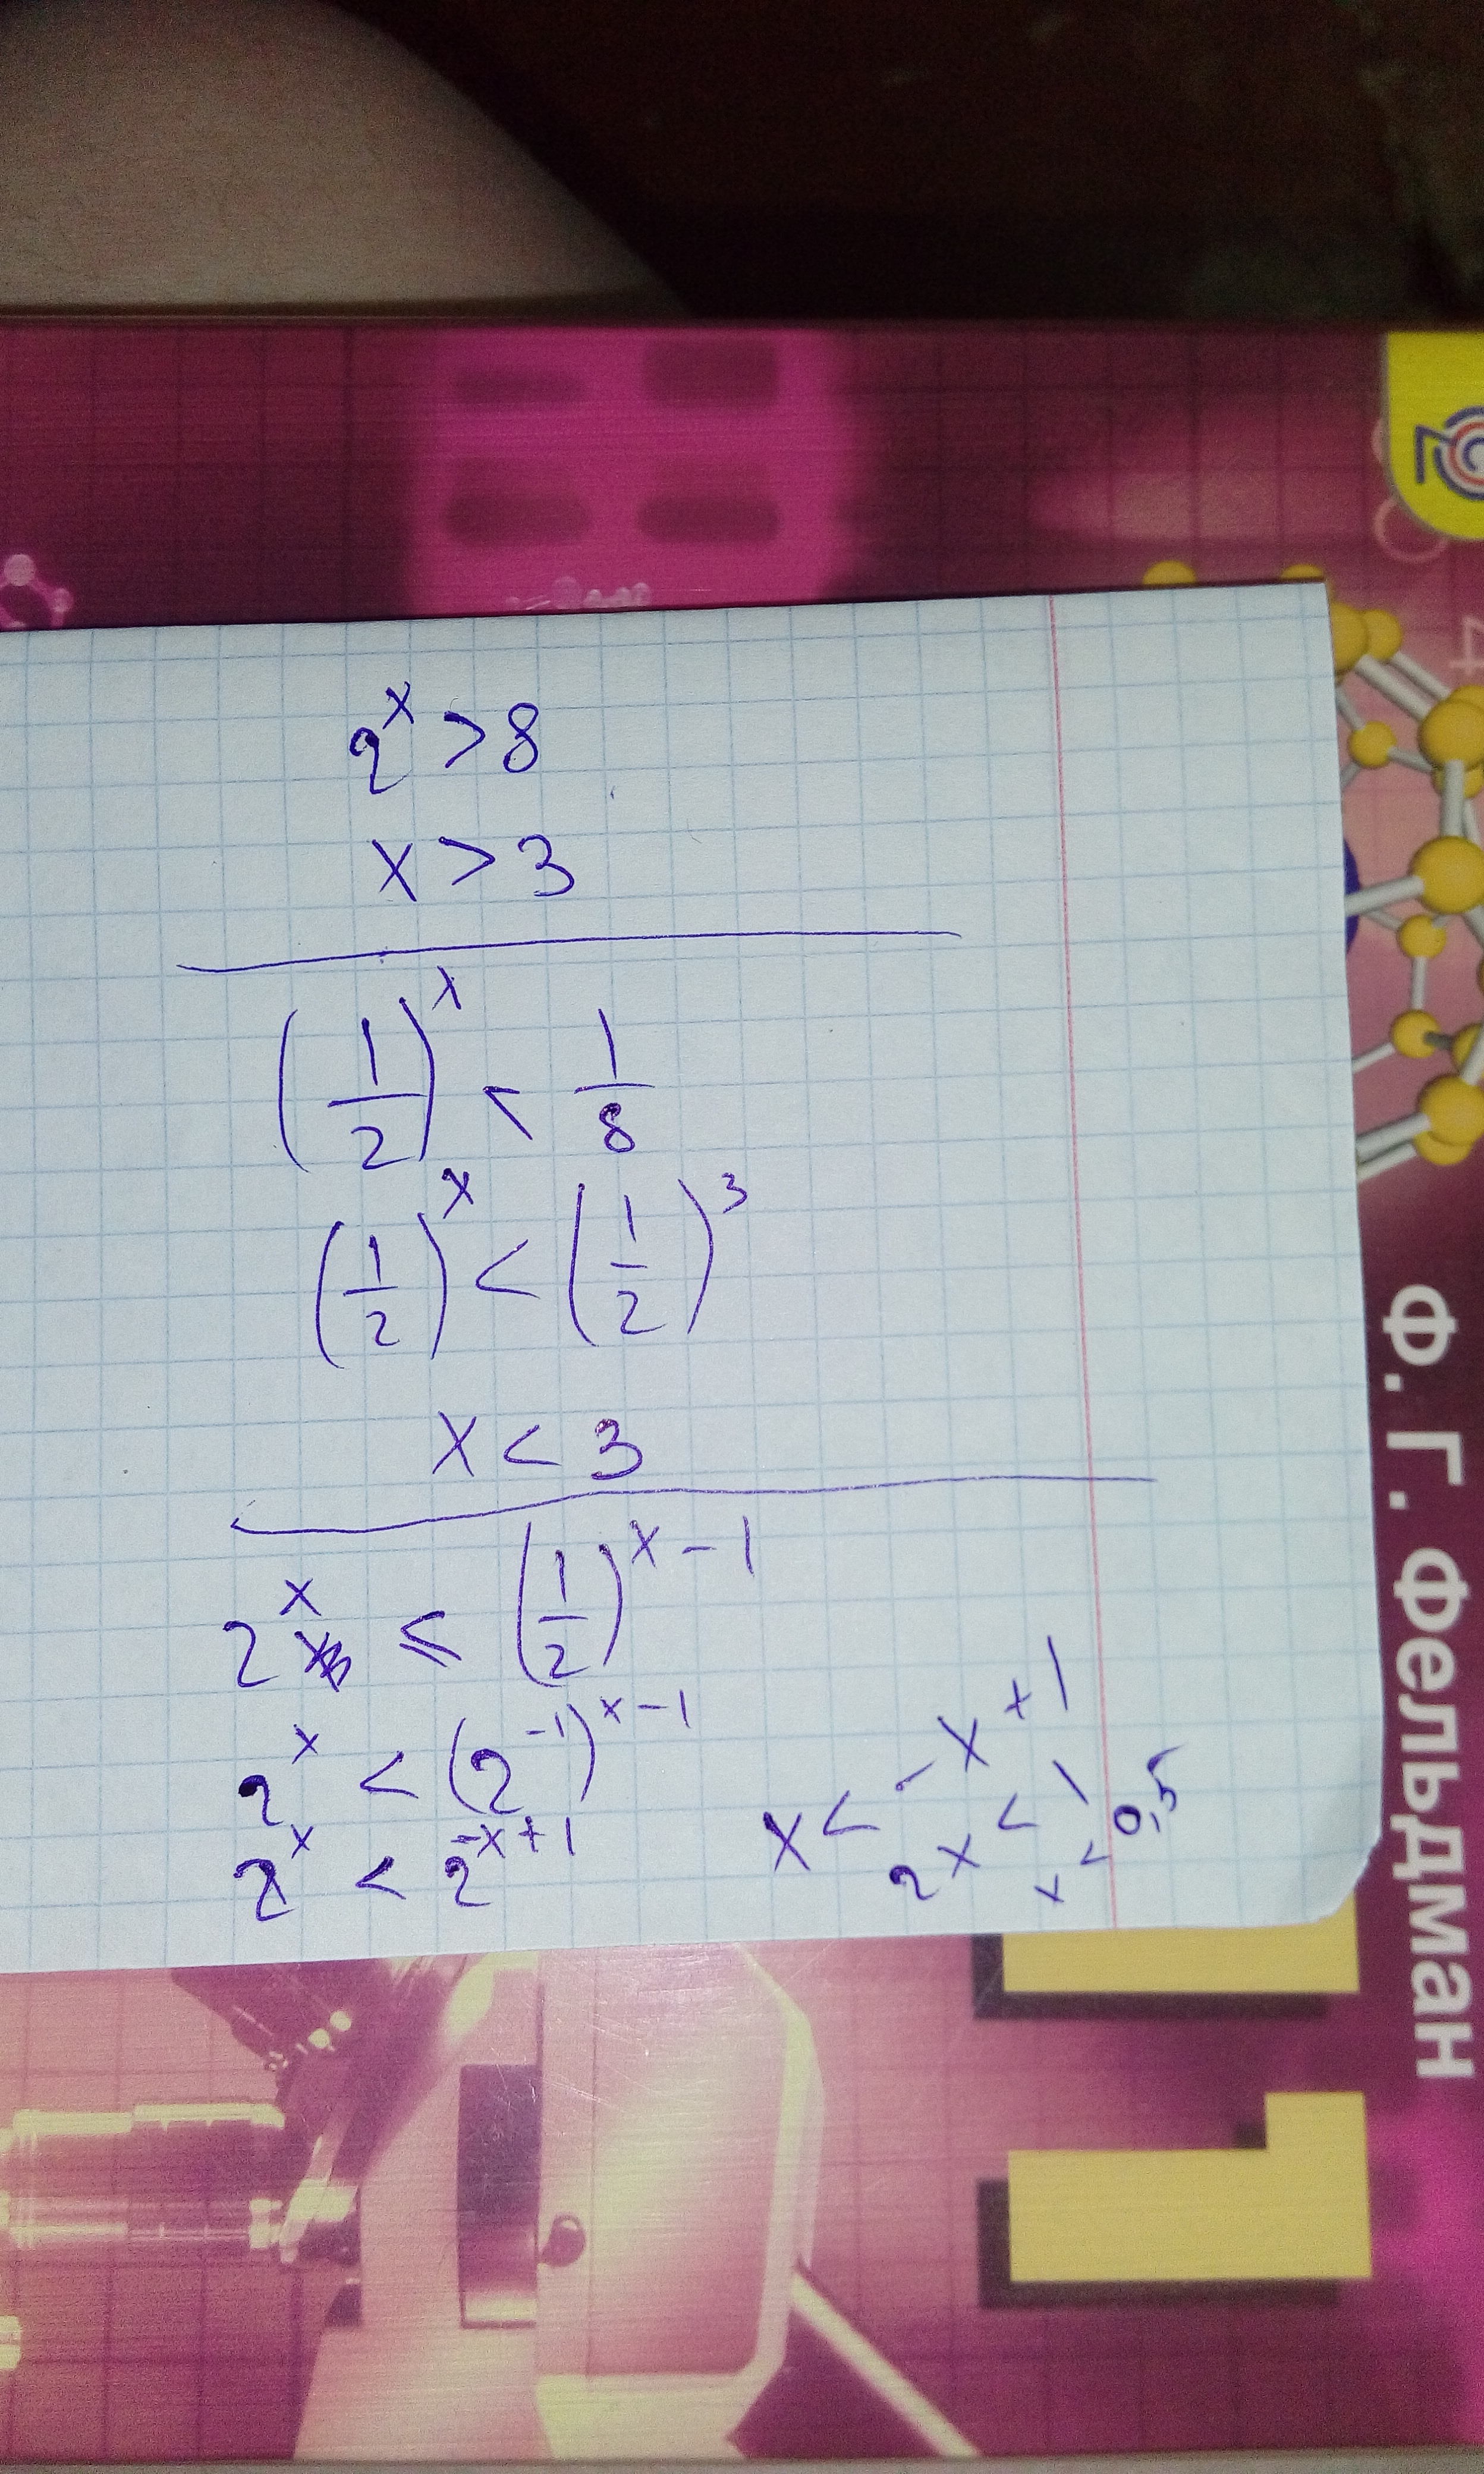 2^x > 8
x > 3
(1/2)^x < 1/8
(1/2)^x < (1/2)^3
x < 3
2^x ≤ (1/2)^(x-1)
2^x < (2^-1)^(x-1)
2^x < 2^(-x+1)
x < -x+1
2x < 1
x < 0,5
Ф. Г. Фельдман